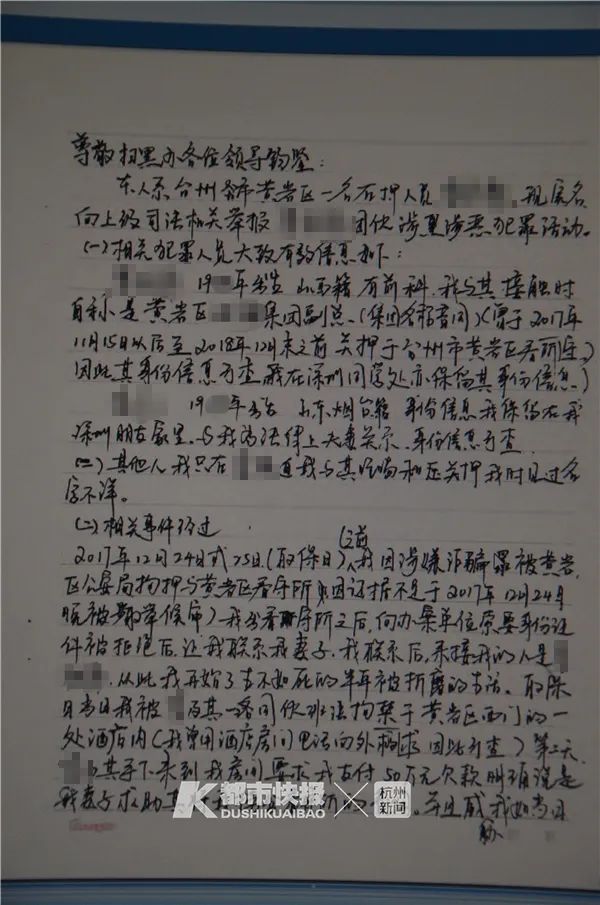 尊敬扫黑办各位领导钧鉴：
本人系台州市黄岩区一名在押人员，现实名
向上级司法相关举报团伙涉黑涉恶犯罪活动。
(一)相关犯罪人员大致有效信息如下：
19年出生 山西籍 有前科，我与其接触时
自称是黄岩区集团副总、(集团名称音同)(曾于2017年
11月15日以后至2018年12月末之前关押于台州市黄岩区看守所。
因此其身份信息可查，我在深圳同居处亦保留其身份信息)
19年出生 山东烟台籍 身份信息我保留在我
深圳朋友家里，与我为法律上夫妻关系，身份信息可查
(三)其他人我只在逼我与其吃喝和在关押我时见过名
字不详。
(二)相关事件经过
2017年12月24日或25日(取保日)之前我因涉嫌诈骗罪被黄岩
区公安局拘押与黄岩区看守所(因证据不足于2017年12月24日
晚被取保候审)我出看守所之后，向办案单位索要身份证
件被拒绝后，让我联系我妻子，我联系后，来接我的人是
从此我开始了生不如死的半年被折磨的生活。取保
日当日我被及其一路同伙非法拘禁于黄岩区西门的一
处酒店内(我曾用酒店房间电话向外求，因此可查)第二天
其手下来到我房间要求我支付50万元欠款明确说是
我妻子求助
并且威我如当日
都市快报
DUSHIKUAIBAO
杭州新闻